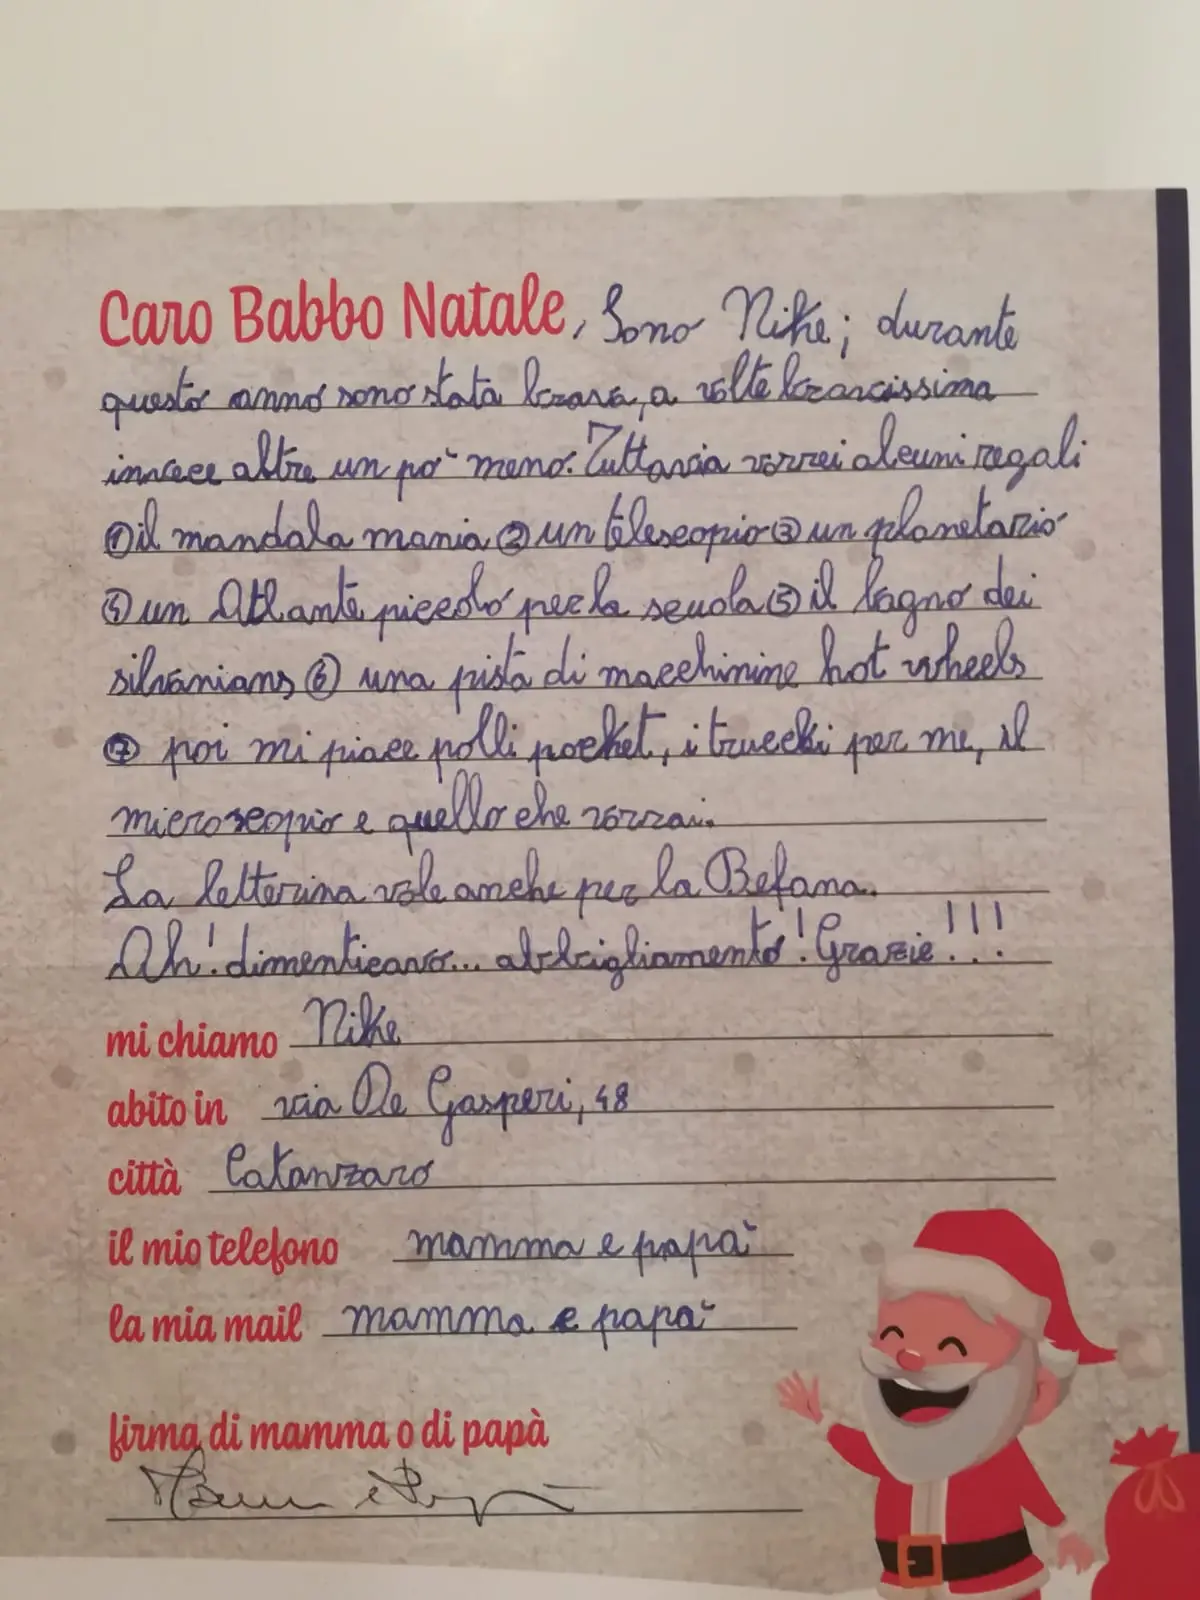 Caro Babbo Natale, Sono Nike; durante
questo anno sono stata brava, a volte bravissima
invece altre un po' meno. Tuttavia vorrei alcuni regali
① il mandala mania ② un telescopio ③ un planetario
④ un Atlante piccolo per la scuola ⑤ il bagno dei
silvanians ⑥ una pista di macchinine hot wheels
⑦ poi mi piace polli pocket, i trucchi per me, il
microscopio e quello che vorrai.
La letterina vale anche per la Befana.
Ah! dimenticavo... abbigliamento! Grazie!!!
mi chiamo Nike
abito in via De Gasperi, 48
città Catanzaro
il mio telefono mamma e papà
la mia mail mamma e papà
firma di mamma o di papà